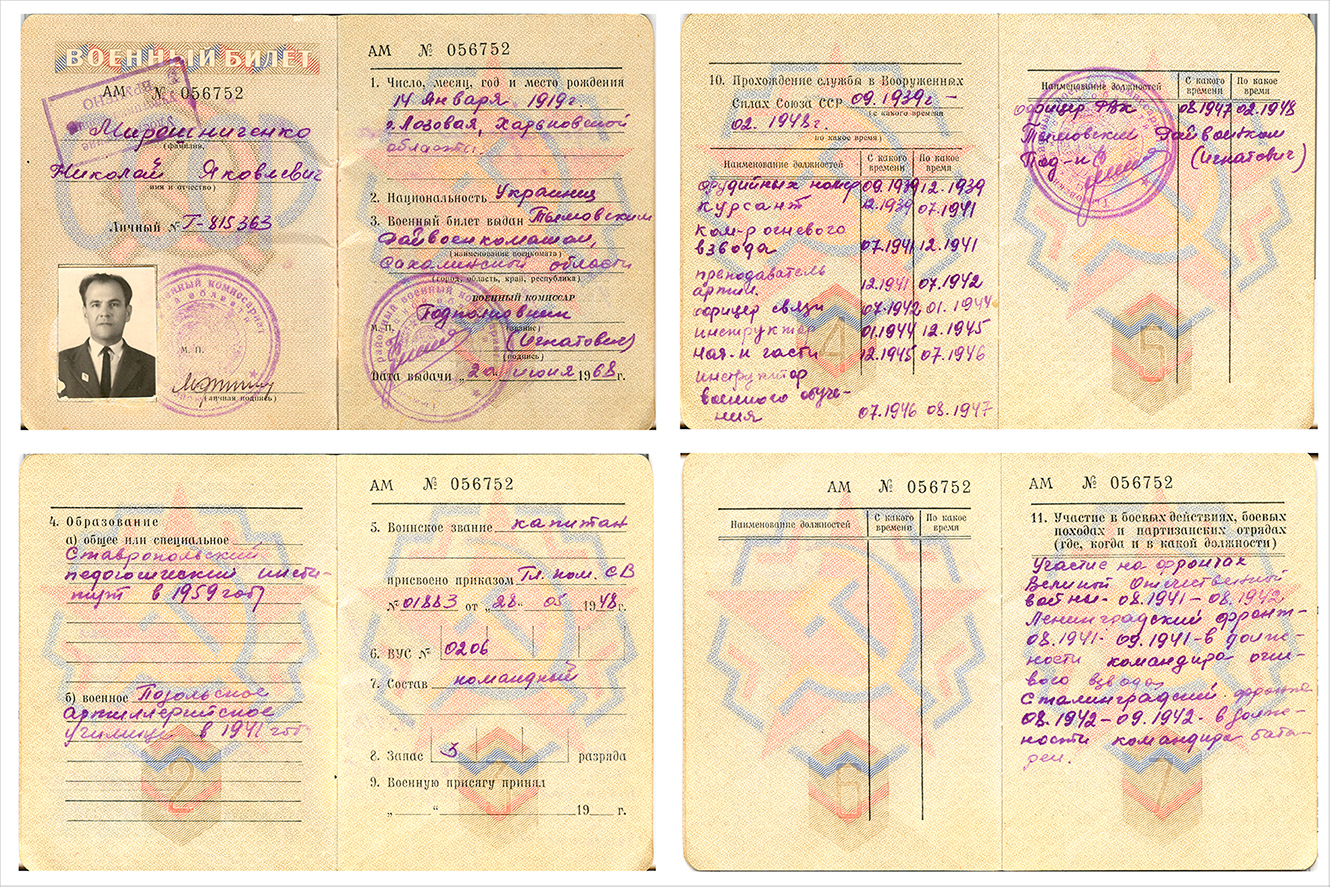 ВОЕННЫЙ БИЛЕТ
АМ № 056752
Мирошниченко
(фамилия,
Николай Яковлевич
имя и отчество)
Личный № Т-815363
М. П.
(личная подпись)
АМ № 056752
1. Число, месяц, год и место рождения
14 Января 1919г.
г. Лозовая, Харьковской
области.
2. Национальность Украинец
3. Военный билет выдан Тымовским
Райвоенкоматом,
(наименование военкомата)
Сахалинской области
(город, область, край, республика)
ВОЕННЫЙ КОМИССАР
Подполковник
М. П. (звание)
(Игнатович)
(подпись)
Дата выдачи „20 июня 1968г.
10. Прохождение службы в Вооруженных
Силах Союза ССР 09.1939г –
(с какого времени
02. 1948г.
по какое время)
Наименование должностей С какого времени По какое время
орудийных номер 09.1939 12.1939
курсант 12.1939 07.1941
ком-р огневого
взвода 07.1941 12.1941
преподаватель
артил. 12.1941 07.1942
офицер связи 07.1942 01.1944
инструктор 01.1944 12.1945
нач-к части 12.1945 07.1946
инструктор
военного обуче-
ния 07.1946 08.1947
4
Наименование должностей С какого времени По какое время
офицер РВК 08.1947 02.1948
Тымовский Райвоенком
Под-к (Игнатович)
5
4. Образование
а) общее или специальное
Ставропольский
педогогический инсти-
тут в 1959 году
б) военное Подольское
артиллерийское
училище в 1941 году
2
АМ № 056752
5. Воинское звание капитан
присвоено приказом Гл. ком. СВ
№ 01883 от „28" 05 1948г.
6. ВУС № 0206
7. Состав командный
8. Запас 3 разряда
9. Военную присягу принял
„ " 19 г.
АМ № 056752
Наименование должностей С какого времени По какое время
6
АМ № 056752
11. Участие в боевых действиях, боевых
походах и партизанских отрядах
(где, когда и в какой должности)
Участие на фронтах
Великой Отечественной
войны- 08.1941 – 08.1942
Ленинградский фронт-
08.1941- 09.1941 - в долж-
ности командира огне-
вого взвода,
Сталинградский фронт
08.1942 – 09.1942 - в долж-
ности командира бата-
реи.
7